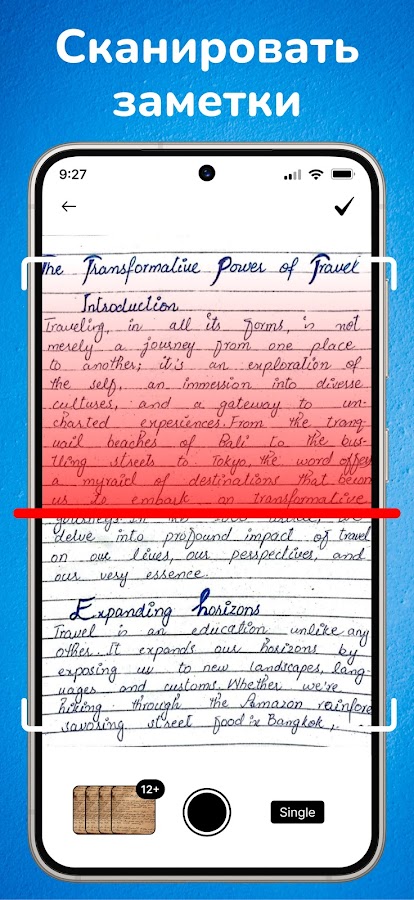 Сканировать
заметки
9:27
The Transformative Power of Travel
Introduction
Traveling, in all its forms, is not
merely a journey from one place
to another; it's an exploration of
the self, an immersion into diverse
cultures, and a gateway to un-
charted experiences. From the tranq-
uail beaches of Bali to the bus-
tling streets to Tokyo, the word offey
a myraid of destinations that becon
us to embark on transformative
delve into profound impact of travel
on our lives, our perspectives, and
our very essence.
Expanding horizons
Travel is an education unlike any
other. It expands our horizons by
exposing us to new landscapes, lang-
uages and customs. Whether we're
hiking through the Amazon rainfore
savoring street food in Bangkok,
12+
Single